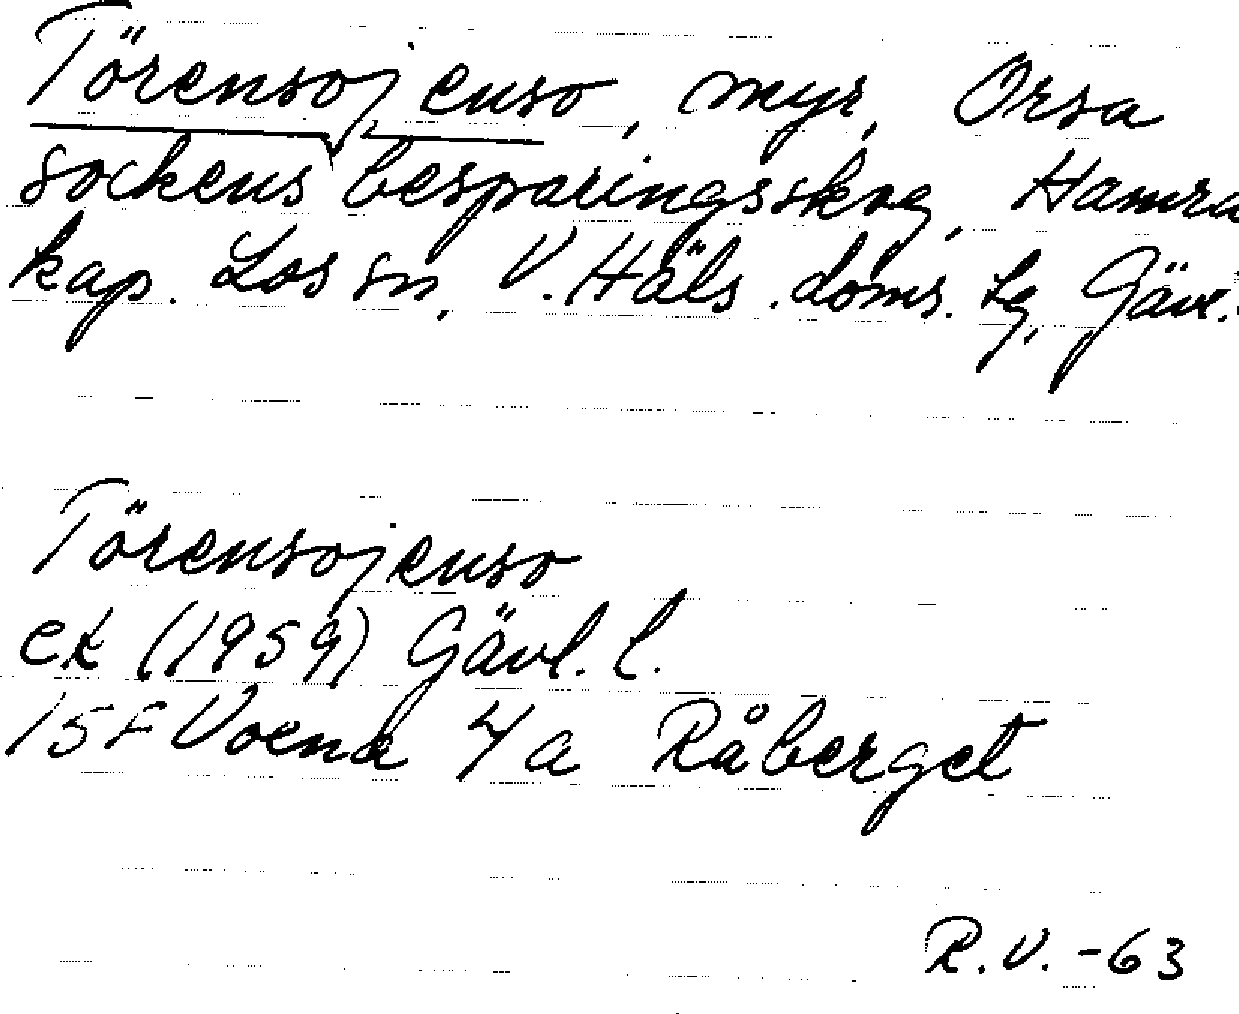 Törensojenso, myr, Orsa
sockens besparingsskog, Hamra
kap. Los sn, V. Häls. doms. tg, Gävl.
Törensojenso
ek (1959) Gävl. l.
15F Voxna 4a Råberget
R.V. -63